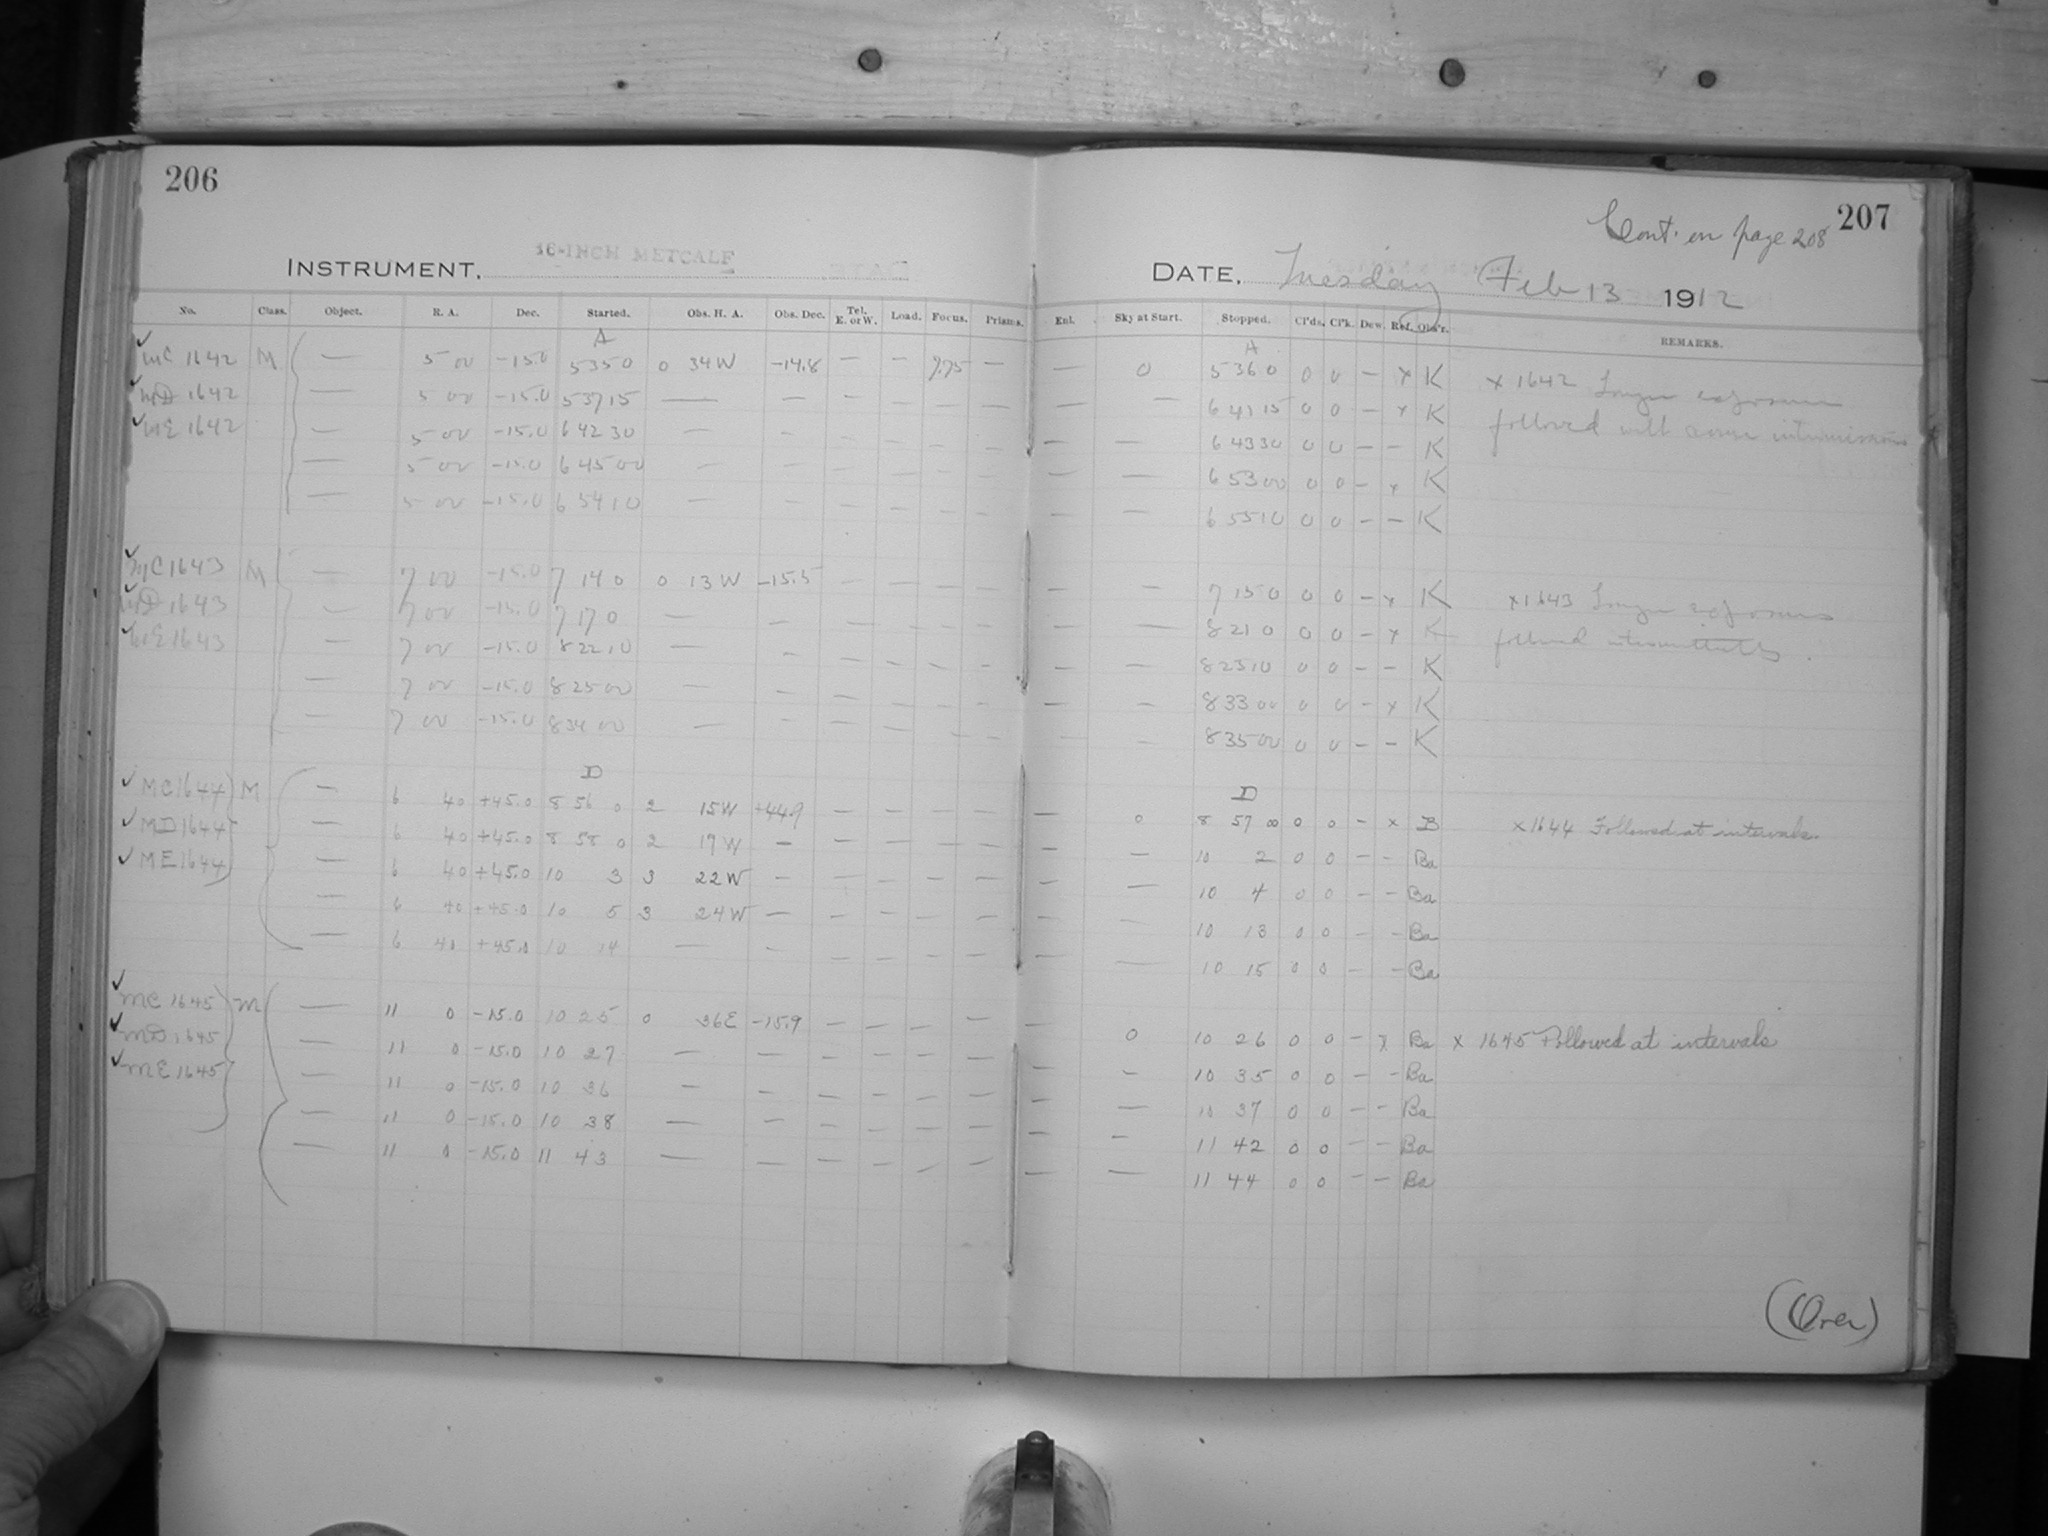 206
207
Cont. on page 208
INSTRUMENT. 16-INCH METCALF
DATE. Tuesday Feb 13 1912
No. Class. Object. R. A. Dec. Started. Obs. H. A. Obs. Dec. Tel. E. or W. Load. Focus. Prisms. Enl. Sky at Start. Stopped. Cl'ds. Cl'k. Dew. Ref. Obs'r. REMARKS.
A A
MC 1642 M — 5 00 -15.0 5 35 0 0 34 W -14.8 — — 7.75 — — 0 5 36 0 0 0 — x K x 1642 Longer exposure
MD 1642 — 5 00 -15.0 5 37 15 — — — — — — — — 6 41 15 0 0 — x K followed with some intermissions
ME 1642 — 5 00 -15.0 6 42 30 — — — — — — — — 6 43 30 0 0 — — K
— 5 00 -15.0 6 45 00 — — — — — — — — 6 53 00 0 0 — x K
— 5 00 -15.0 6 54 10 — — — — — — — — 6 55 10 0 0 — — K
MC 1643 M — 7 00 -15.0 7 14 0 0 13 W -15.5 — — — — — — 7 15 0 0 0 — x K x 1643 Longer exposures
MD 1643 — 7 00 -15.0 7 17 0 — — — — — — — — 8 21 0 0 0 — x K followed intermittently.
ME 1643 — 7 00 -15.0 8 22 10 — — — — — — — — 8 23 10 0 0 — — K
— 7 00 -15.0 8 25 00 — — — — — — — — 8 33 00 0 0 — x K
— 7 00 -15.0 8 34 00 — — — — — — — — 8 35 00 0 0 — — K
D D
MC 1644 M — 6 40 +45.0 8 56 0 2 15 W +44.9 — — — — — 0 8 57 00 0 0 — x B x 1644 Followed at intervals.
MD 1644 — 6 40 +45.0 8 58 0 2 17 W — — — — — — — 10 2 0 0 — — Ba
ME 1644 — 6 40 +45.0 10 3 3 22 W — — — — — — — 10 4 0 0 — — Ba
— 6 40 +45.0 10 5 3 24 W — — — — — — — 10 13 0 0 — — Ba
— 6 40 +45.0 10 14 — — — — — — — — 10 15 0 0 — — Ba
MC 1645 M — 11 0 -15.0 10 25 0 36 E -15.9 — — — — — 0 10 26 0 0 — x Ba x 1645 Followed at intervals
MD 1645 — 11 0 -15.0 10 27 — — — — — — — — 10 35 0 0 — — Ba
ME 1645 — 11 0 -15.0 10 36 — — — — — — — — 10 37 0 0 — — Ba
— 11 0 -15.0 10 38 — — — — — — — — 11 42 0 0 — — Ba
— 11 0 -15.0 11 43 — — — — — — — — 11 44 0 0 — — Ba
(Over)